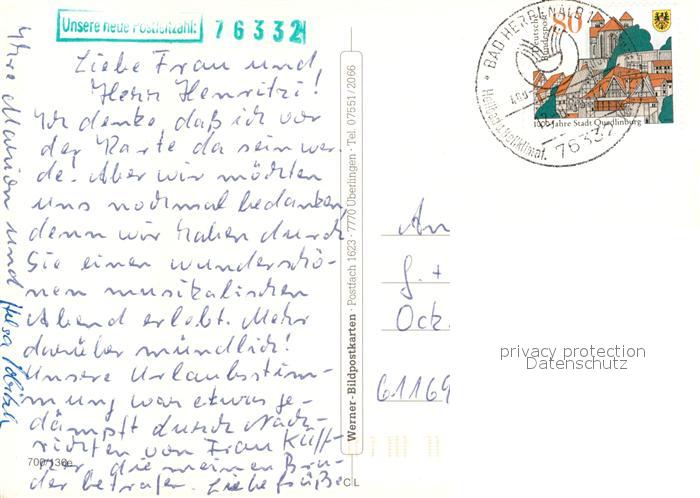 Unsere neue Postleitzahl: 76332
Liebe Frau und
Herr Henritzi!
Ich denke, daß ich vor
der Karte da sein wer-
de. Aber wir möchten
uns nochmal bedanken,
denn wir haben durch
Sie einen wunderschö-
nen musikalischen
Abend erlebt. Mehr
darüber mündlich!
Unsere Urlaubsstim-
mung war etwas ge-
dämpft durch Nach-
richten von Frau
die meinen Bru-
der betrafen. Liebe Grüße
Ihre Marion und
700/130e
Werner-Bildpostkarten · Postfach 1623 · 7770 Überlingen · Tel. 07551/2066
CL
BAD HERRENALB 1
76332
Deutsche Bundespost
80
1000 Jahre Stadt Quedlinburg
An
G. +
Ock.
61169
privacy protection
Datenschutz